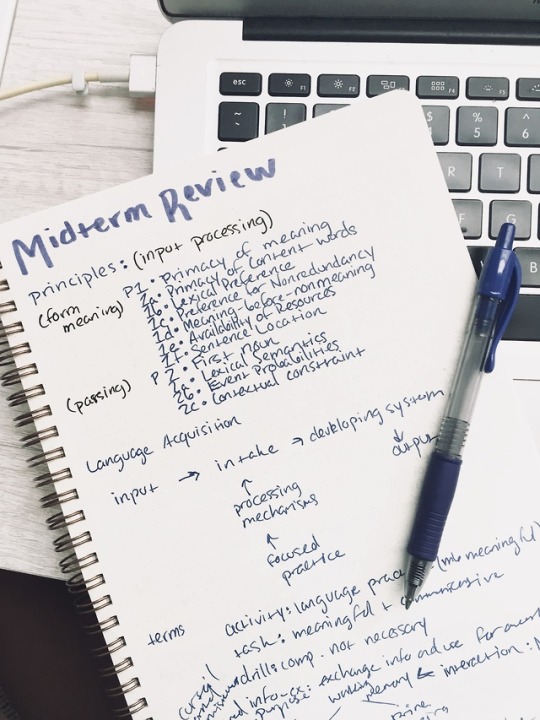 Midterm Review
principles: (input processing)
(form meaning)
P1. Primacy of meaning
2a. Primacy of content words
2b. Lexical Preference
2c. Preference for Nonredundancy
2d. Meaning-before-nonmeaning
2e. Availability of Resources
2f. Sentence Location
(passing)
P2. First noun
2a. Lexical Semantics
2b. Event Probabilities
2c. Contextual constraint
Language Acquisition
input → intake → developing system
↓
output
↑
processing
mechanisms
↑
focused
practice
terms
activity: language (mb meaningful)
task: meaningful + communicative
drill: comp. not necessary
info-ex: exchange info and use for
purpose: working memory & interaction:
esc
F1
F2
F3
F4
F5
F6
~
`
!
$
4
%
5
^
6
R
T
F
G
B